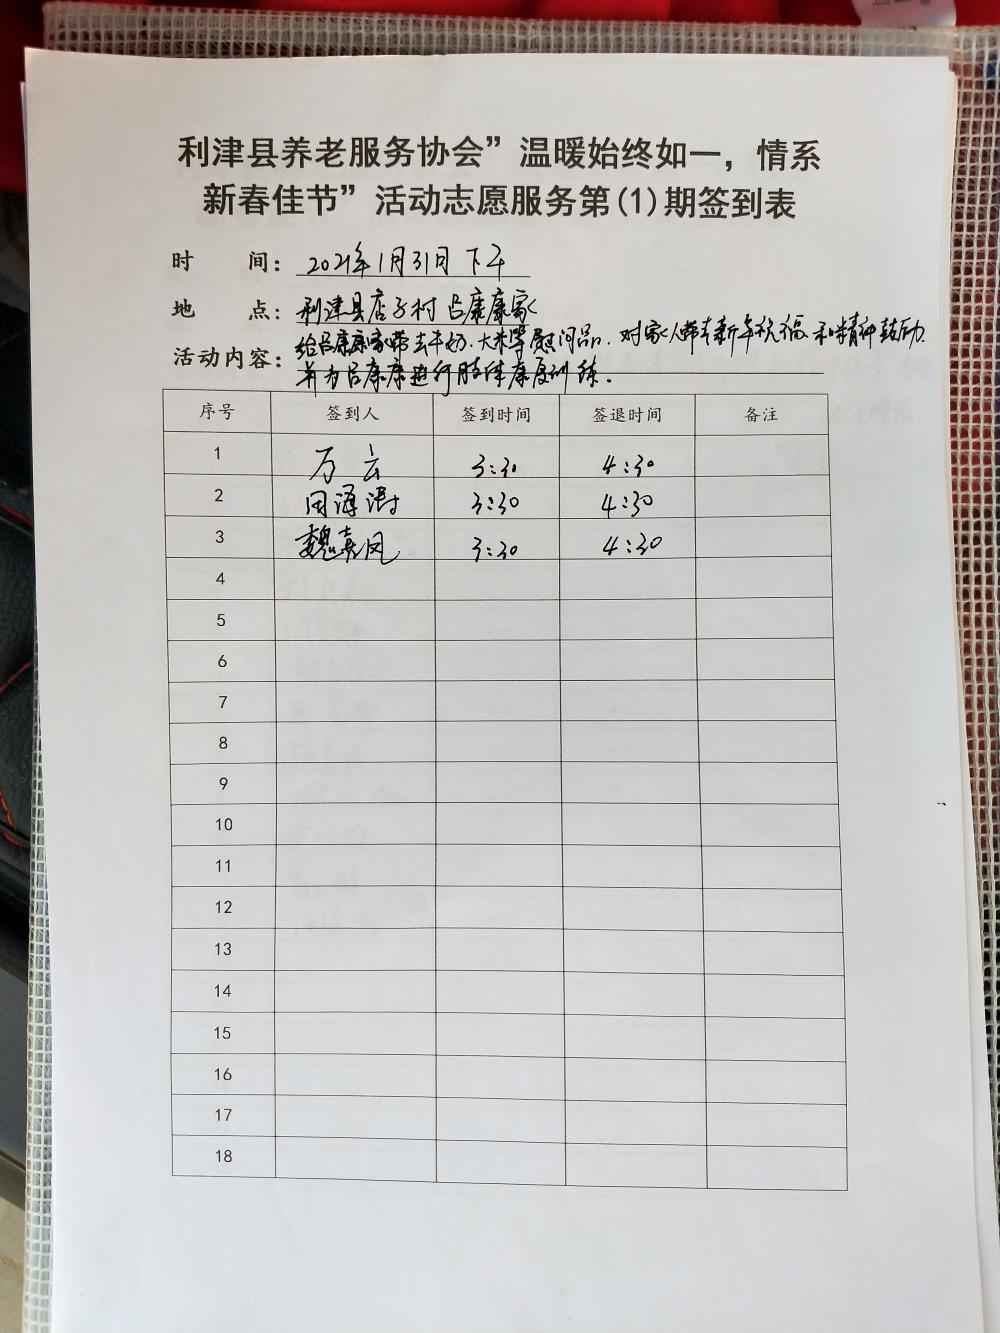 利津县养老服务协会”温暖始终如一，情系
新春佳节”活动志愿服务第(1)期签到表
时 间： 2021年1月31日 下午
地 点： 利津县店子村 吕康康家
活动内容： 给吕康康家带去牛奶、大米等慰问品．对家人带去新年祝福 和精神鼓励
并为吕康康进行肢体康复训练．
序号 签到人 签到时间 签退时间 备注
1 万云 3:30 4:30
2 田海涛 3:30 4:30
3 魏真凤 3:30 4:30
4
5
6
7
8
9
10
11
12
13
14
15
16
17
18